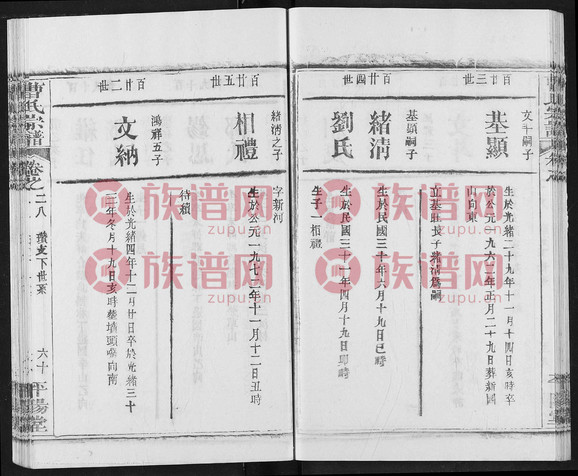 百廿三世
文斗嗣子
基顯
生於光緒二十九年十一月十四日亥時卒
於公元一九六二年正月二十九日葬新國
山向東
立基旺長子緒清爲嗣
百廿四世
基顯嗣子
緒清
生於民國三十年六月十九日巳時
劉氏
生於民國三十一年四月十九日
生子一相禮
百廿五世
緒清之子
相禮
字新河
生於公元一九七二年十一月十二日丑時
待續
百廿二世
鴻祥五子
文納
生於光緒四年十二月廿日卒於光緒三十
三年冬月十九日亥時葬墳頭嘴向南
曹氏宗譜
卷之二八
贊支下世系
六十
平陽堂
族谱网
zupu.cn
族谱网
zupu.cn